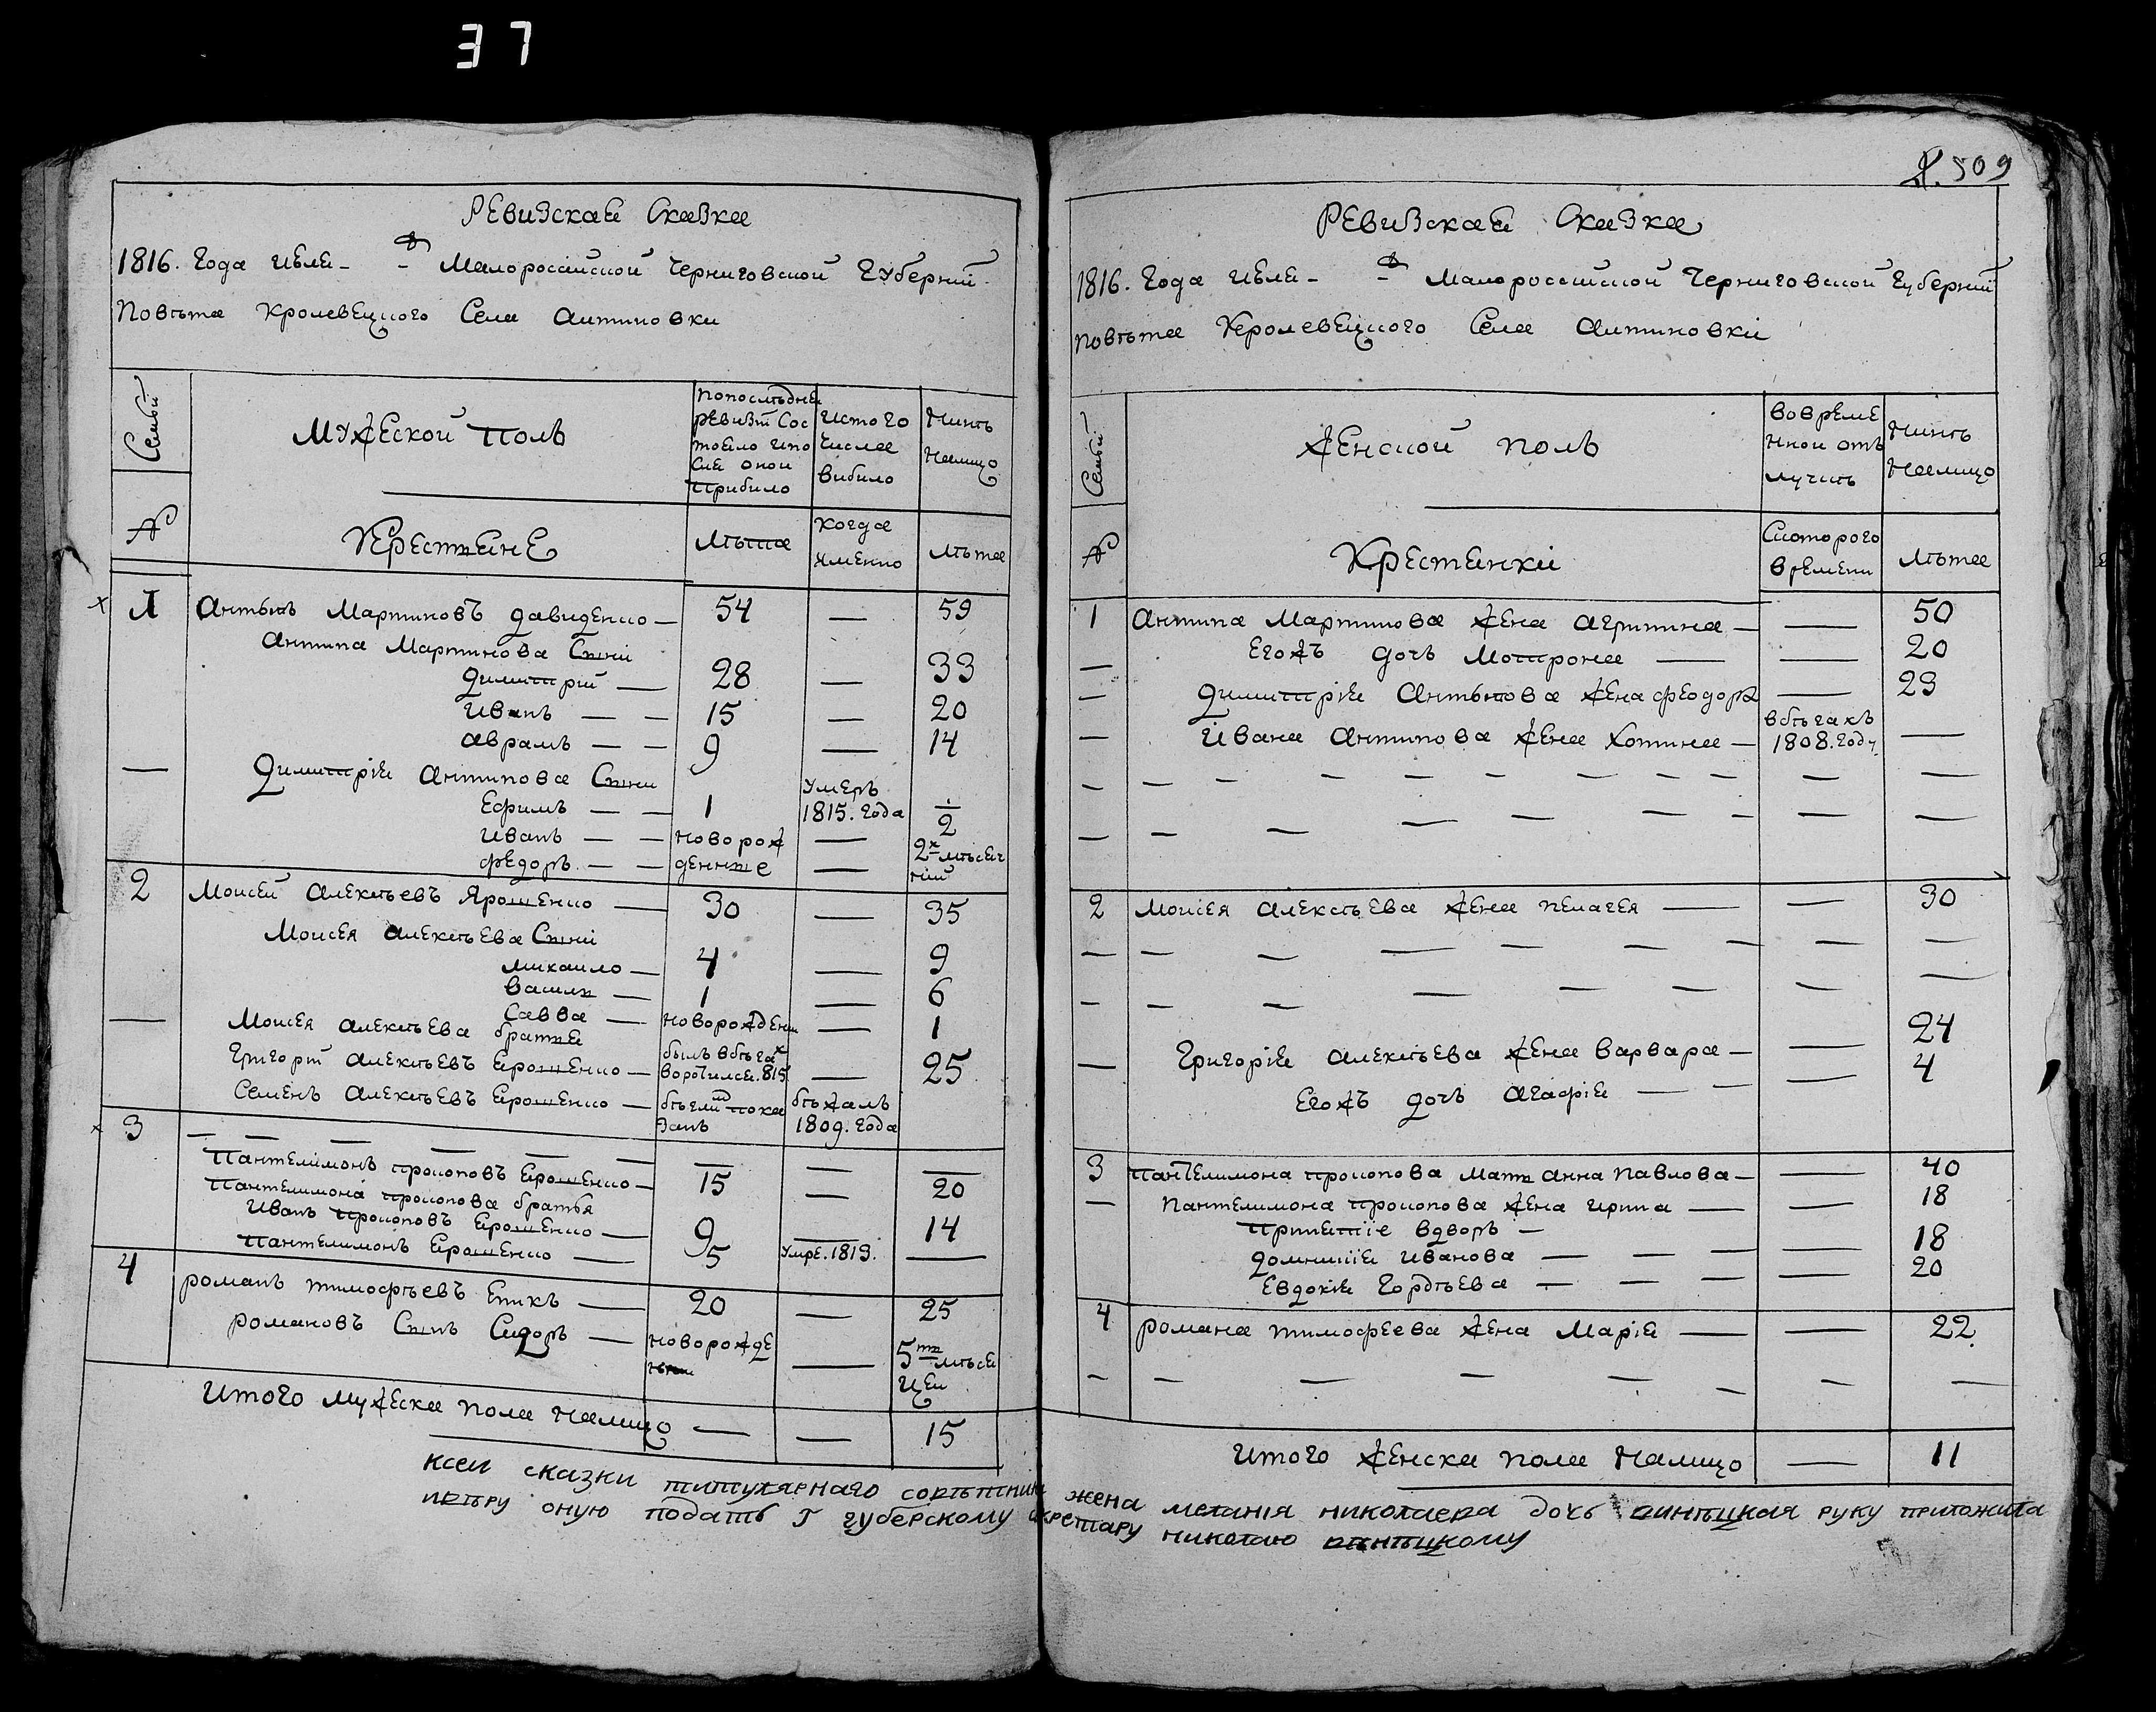 37
Л. 509
Ревизская Сказка
1816. Года июля - Малоросийской Черниговской Губернии
Повѣта Кролевецкого Села Антиновки
Семьи
№
Мужеской полъ
Крестяне
Попослѣдней
ревизіи сос
тояло ипо
сля оной
прибило
Лѣта
Истого
числа
вибило
Когда
именно
Нинѣ
Налицо
Лѣта
1 Антипъ Мартиновъ Давиденко — 54 — 59
Антипа Мартинова Сыни
Димитрій — 28 — 33
Иванъ — — 15 — 20
Аврамъ — — 9 — 14
— Димитрія Антипова Сыни
Ефимъ — — 1 Умеръ 1815. года —
Иванъ — — новорож — 2
Федоръ — — денные — 2х мѣсяч ній
2 Моисей Алексѣевъ Ярошенко — 30 — 35
Моисея Алексѣева Сыни
Михаило — 4 — 9
Васили — 1 — 6
Савва — новорожденн — 1
— Моисея Алексѣева братья
Григорій Алексѣевъ Ярошенко — былъ вбѣгах воротился. 815 — 25
Семенъ Алексѣевъ Ярошенко — бѣглій пока занъ бѣжалъ 1809. года
3 — — — — — — — — —
Пантелимонъ Прокоповъ Ярошенко — 15 — 20
Пантелимона Прокопова братья
Иванъ Прокоповъ Ярошенко — 9 — 14
Пантелимонъ Ярошенко — 5 Умре. 1813. —
4 Романъ Тимофѣевъ — 20 — 25
Романовъ Сынъ Сидоръ — новорожде — 5ти мѣся цей
Итого мужеска пола Налицо — — 15
Ревизская Сказка
1816. Года июля - Малоросийской Черниговской Губерний
Повѣта Кролевецкого Села Антиновки
Семьи
№
Женской полъ
Крестянки
Вовреме
нной отъ
лучкѣ
Скоторого
времени
Нинѣ
Налицо
Лѣта
1 Антипа Мартинова жена Агрипина — — 50
— Егожъ дочъ Мотрона — — 20
— Димитрія Антипова жена Феодора — 23
— Ивана Антипова жена Хотина — вбѣгахъ 1808. году. —
— — — — — — — — — — —
— — — — — — — —
2 Моисея Алексѣева жена Пелагея — — 30
— — — — — — — — —
— — — — — — — — —
— Григорія Алексѣева жена Варвара — — 24
Егожъ дочъ Агафія — — — 4
3 Пантелимона Прокопова мать Анна Павлова — — 40
— Пантелимона Прокопова жена Ирина — — 18
Принятіе вдворъ —
Домникія Иванова — — — — 18
Евдокія Гордѣева — — — — 20
4 Романа Тимофеева жена Марія — — 22
— — — — — — — —
Итого женска пола Налицо — 11
Ксеи сказки титулярнаго совѣтника жена меланія николаева дочь винѣцкая руку приложила
ивѣру оную подать Г губерскому секретару николаю винѣцкому